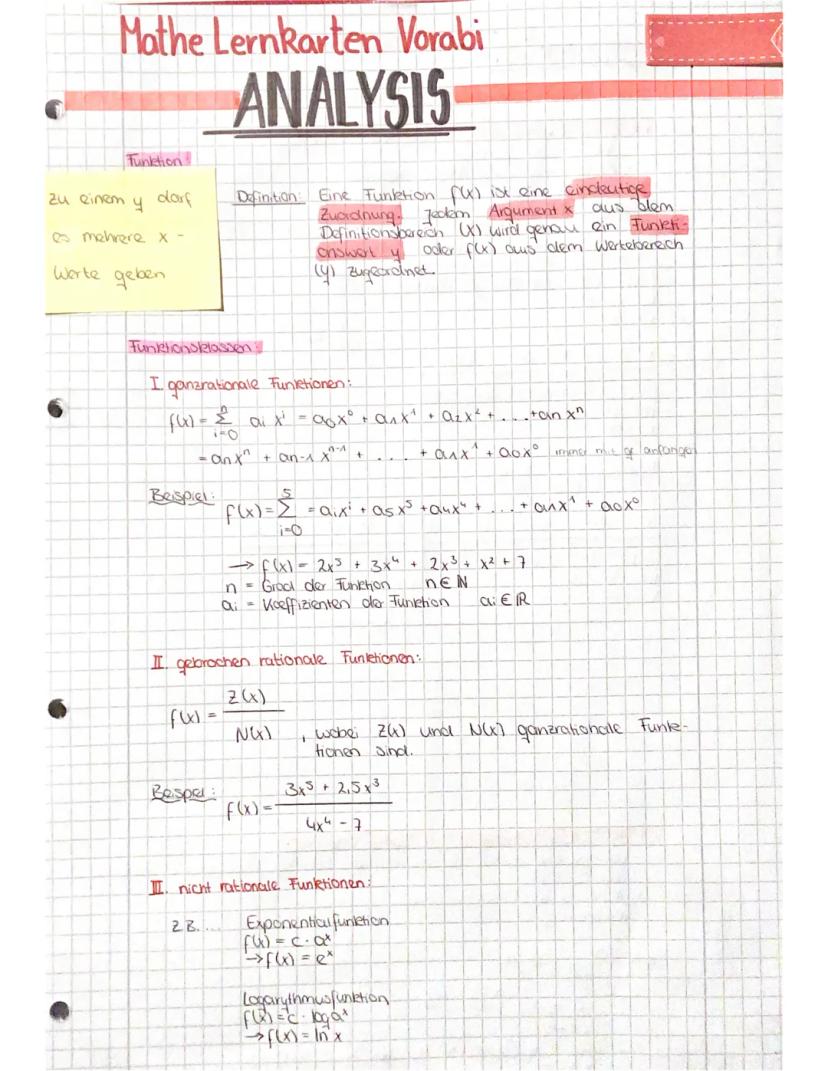 Mathe Lernkarten Vorabi
ANALYSIS
Funktion:
zu einem y darf
es mehrere x -
Werte geben
Definition: Eine Funktion f(x) ist eine eindeutige
Zuordnung. Jedem Argument x aus dem
Definitionsbereich (x) wird genau ein Funkti-
onswert y oder f(x) aus dem Wertebereich
(y) zugeordnet.
Funktionsklassen:
I. ganzrationale Funktionen:
f(x) = Σ_{i=0}^{n} aᵢ xⁱ = a₀x⁰ + a₁x¹ + a₂x² + .... + aₙ xⁿ
= aₙxⁿ + aₙ₋₁ xⁿ⁻¹ + .... + a₁x¹ + a₀x⁰ immer mit gr anfangen
Beispiel: f(x) = Σ_{i=0}^{5} = aᵢxⁱ + a₅x⁵ + a₄x⁴ + ... + a₁x¹ + a₀x⁰
→ f(x) = 2x⁵ + 3x⁴ + 2x³ + x² + 7
n = Grad der Funktion n ∈ ℕ
aᵢ = Koeffizienten der Funktion aᵢ ∈ ℝ
II. gebrochen rationale Funktionen:
f(x) = Z(x) / N(x) , wobei Z(x) und N(x) ganzrationale Funk-
tionen sind.
Beispiel: f(x) = 3x⁵ + 2,5x³ / 4x⁴ - 7
III. nicht rationale Funktionen:
z.B.... Exponentialfunktion
f(x) = c · aˣ
→ f(x) = eˣ
Logarythmusfunktion
f(x) = c · log aˣ
→ f(x) = ln x